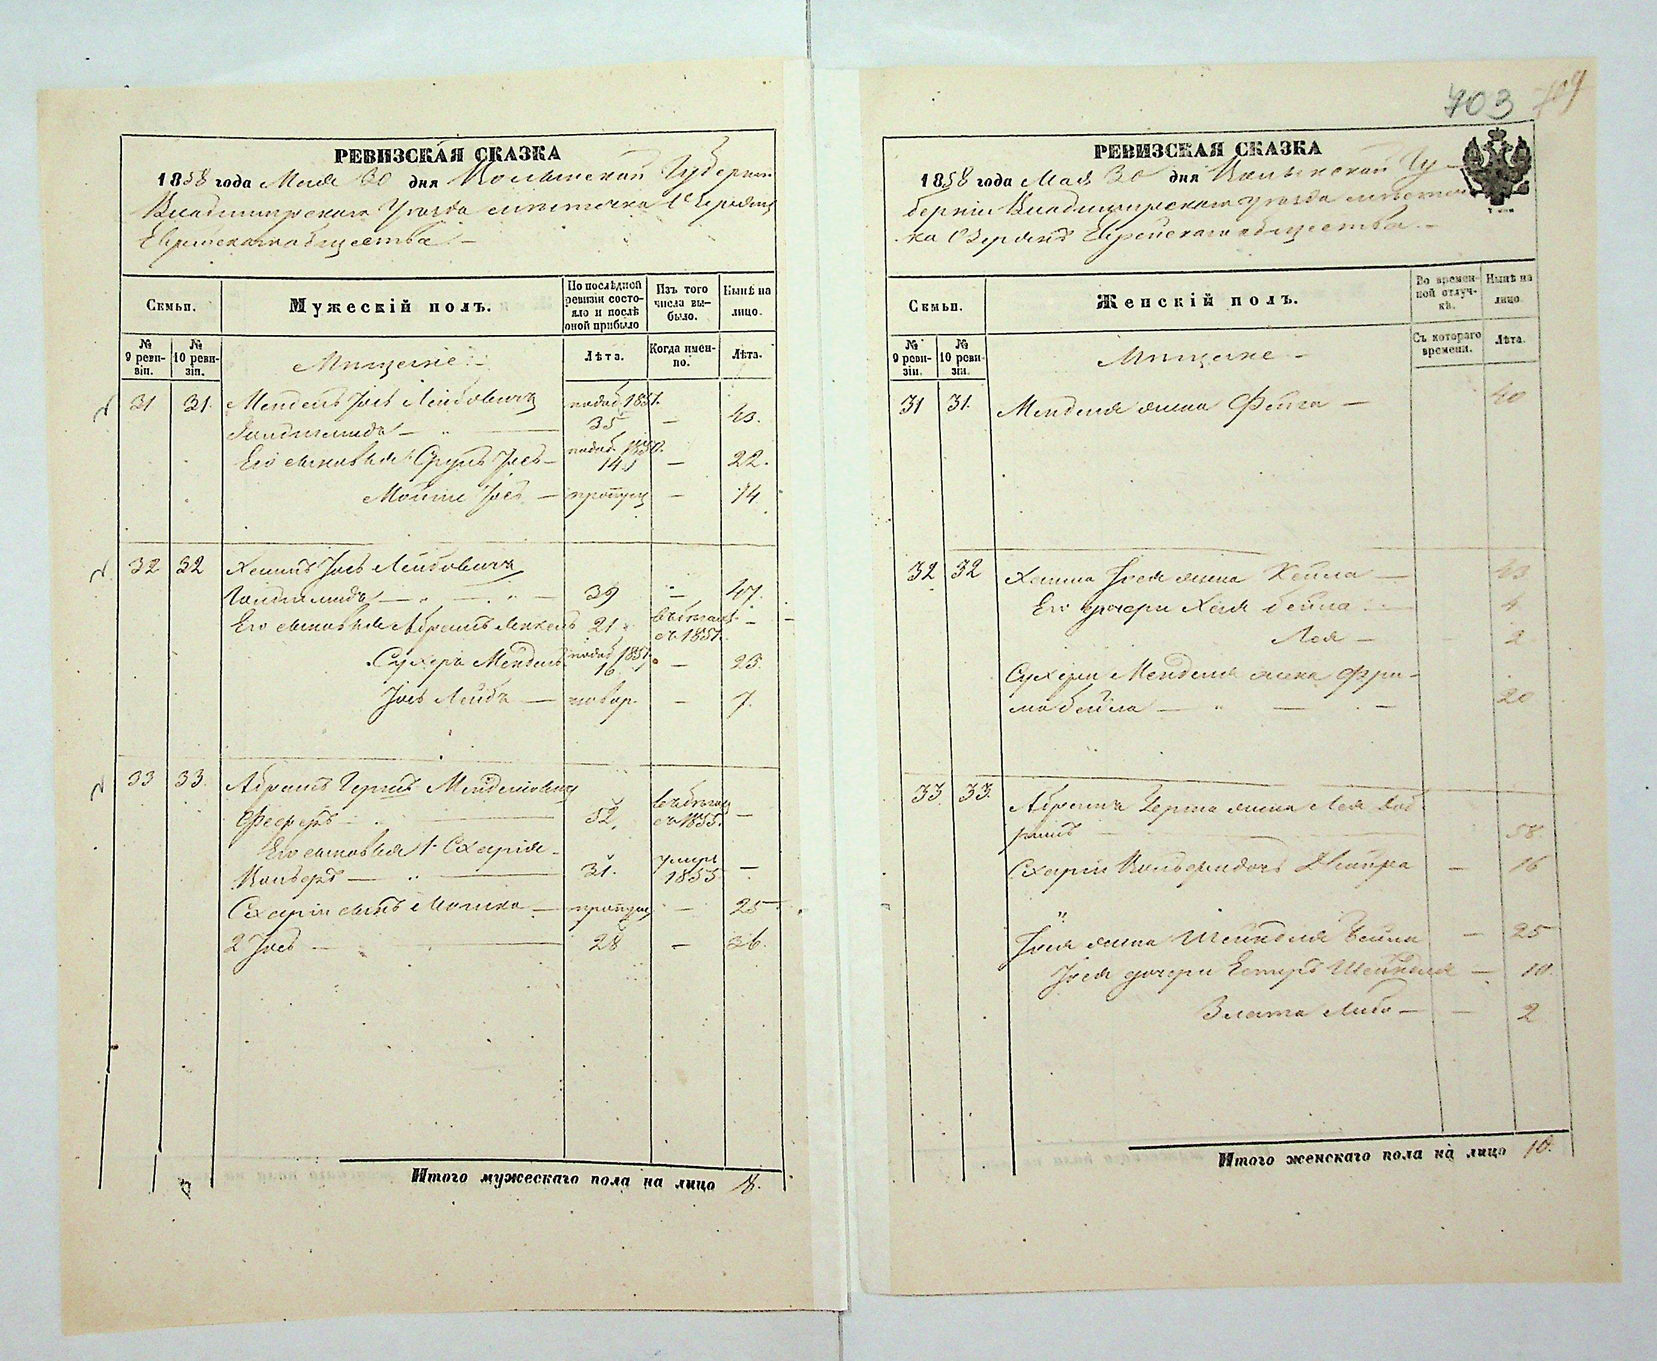 703
РЕВИЗСКАЯ СКАЗКА
1858 года Мая 30 дня Волынской Губернии
Владимирскаго Уезда местечка Озерянъ
Еврейскаго общества
Семьи.
Мужескій полъ.
По послѣдней ревизіи состояло и послѣ оной прибыло
Изъ того числа выбыло.
Нынѣ на лицо.
№ 9 ревизіи.
№ 10 ревизіи.
Мещане
Лѣта.
Когда именно.
Лѣта.
31 31. Мендель Іось Лейбовичъ 1851.
35 — 43.
Его сыновья Сруль Іось — 1850. 14 — 22.
Мошко Іось — пропущ — 14.
32 32 Хаимъ Іось Лейбовичъ
39 — 47.
Его сыновья Абрамъ 21 въ бегахъ съ 1851. —
Сухеръ Мендель 1851. 16 — 23.
Іось Лейбъ — новор. — 7.
33 33. Абрамъ Гершъ Менделевичъ
52. въ бегах съ 1855. —
Его сыновья 1. Сахарія
31. умеръ 1853. —
Сахаріи сынъ Мошко — пропущ — 25
2 Іось — 28 — 36.
Итого мужескаго пола на лицо 8.
РЕВИЗСКАЯ СКАЗКА
1858 года Мая 30 дня Волынской Гу-
берніи Владимирскаго уезда местеч-
ка Озерянъ Еврейскаго общества
Семьи.
Женскій полъ.
Во временной отлучкѣ.
Нынѣ на лицо.
№ 9 ревизіи.
№ 10 ревизіи.
Мещане
Съ котораго времени.
Лѣта.
31 31. Менделя жена Фейга — 40
32 32 Хаима Іося жена Кейла — 43
Его дочери Хая Бейла — 4
Лея — 2
Сухера Менделя жена Фри-
ма Бейла — 20
33 33. Абрама Герша жена Лея
58.
Сахаріи дочь Двойра — 16
Іося жена Шейндля Бейла — 25
Іося дочери Естеръ Шейндля — 10.
Злата Либа — 2
Итого женскаго пола на лицо 10.